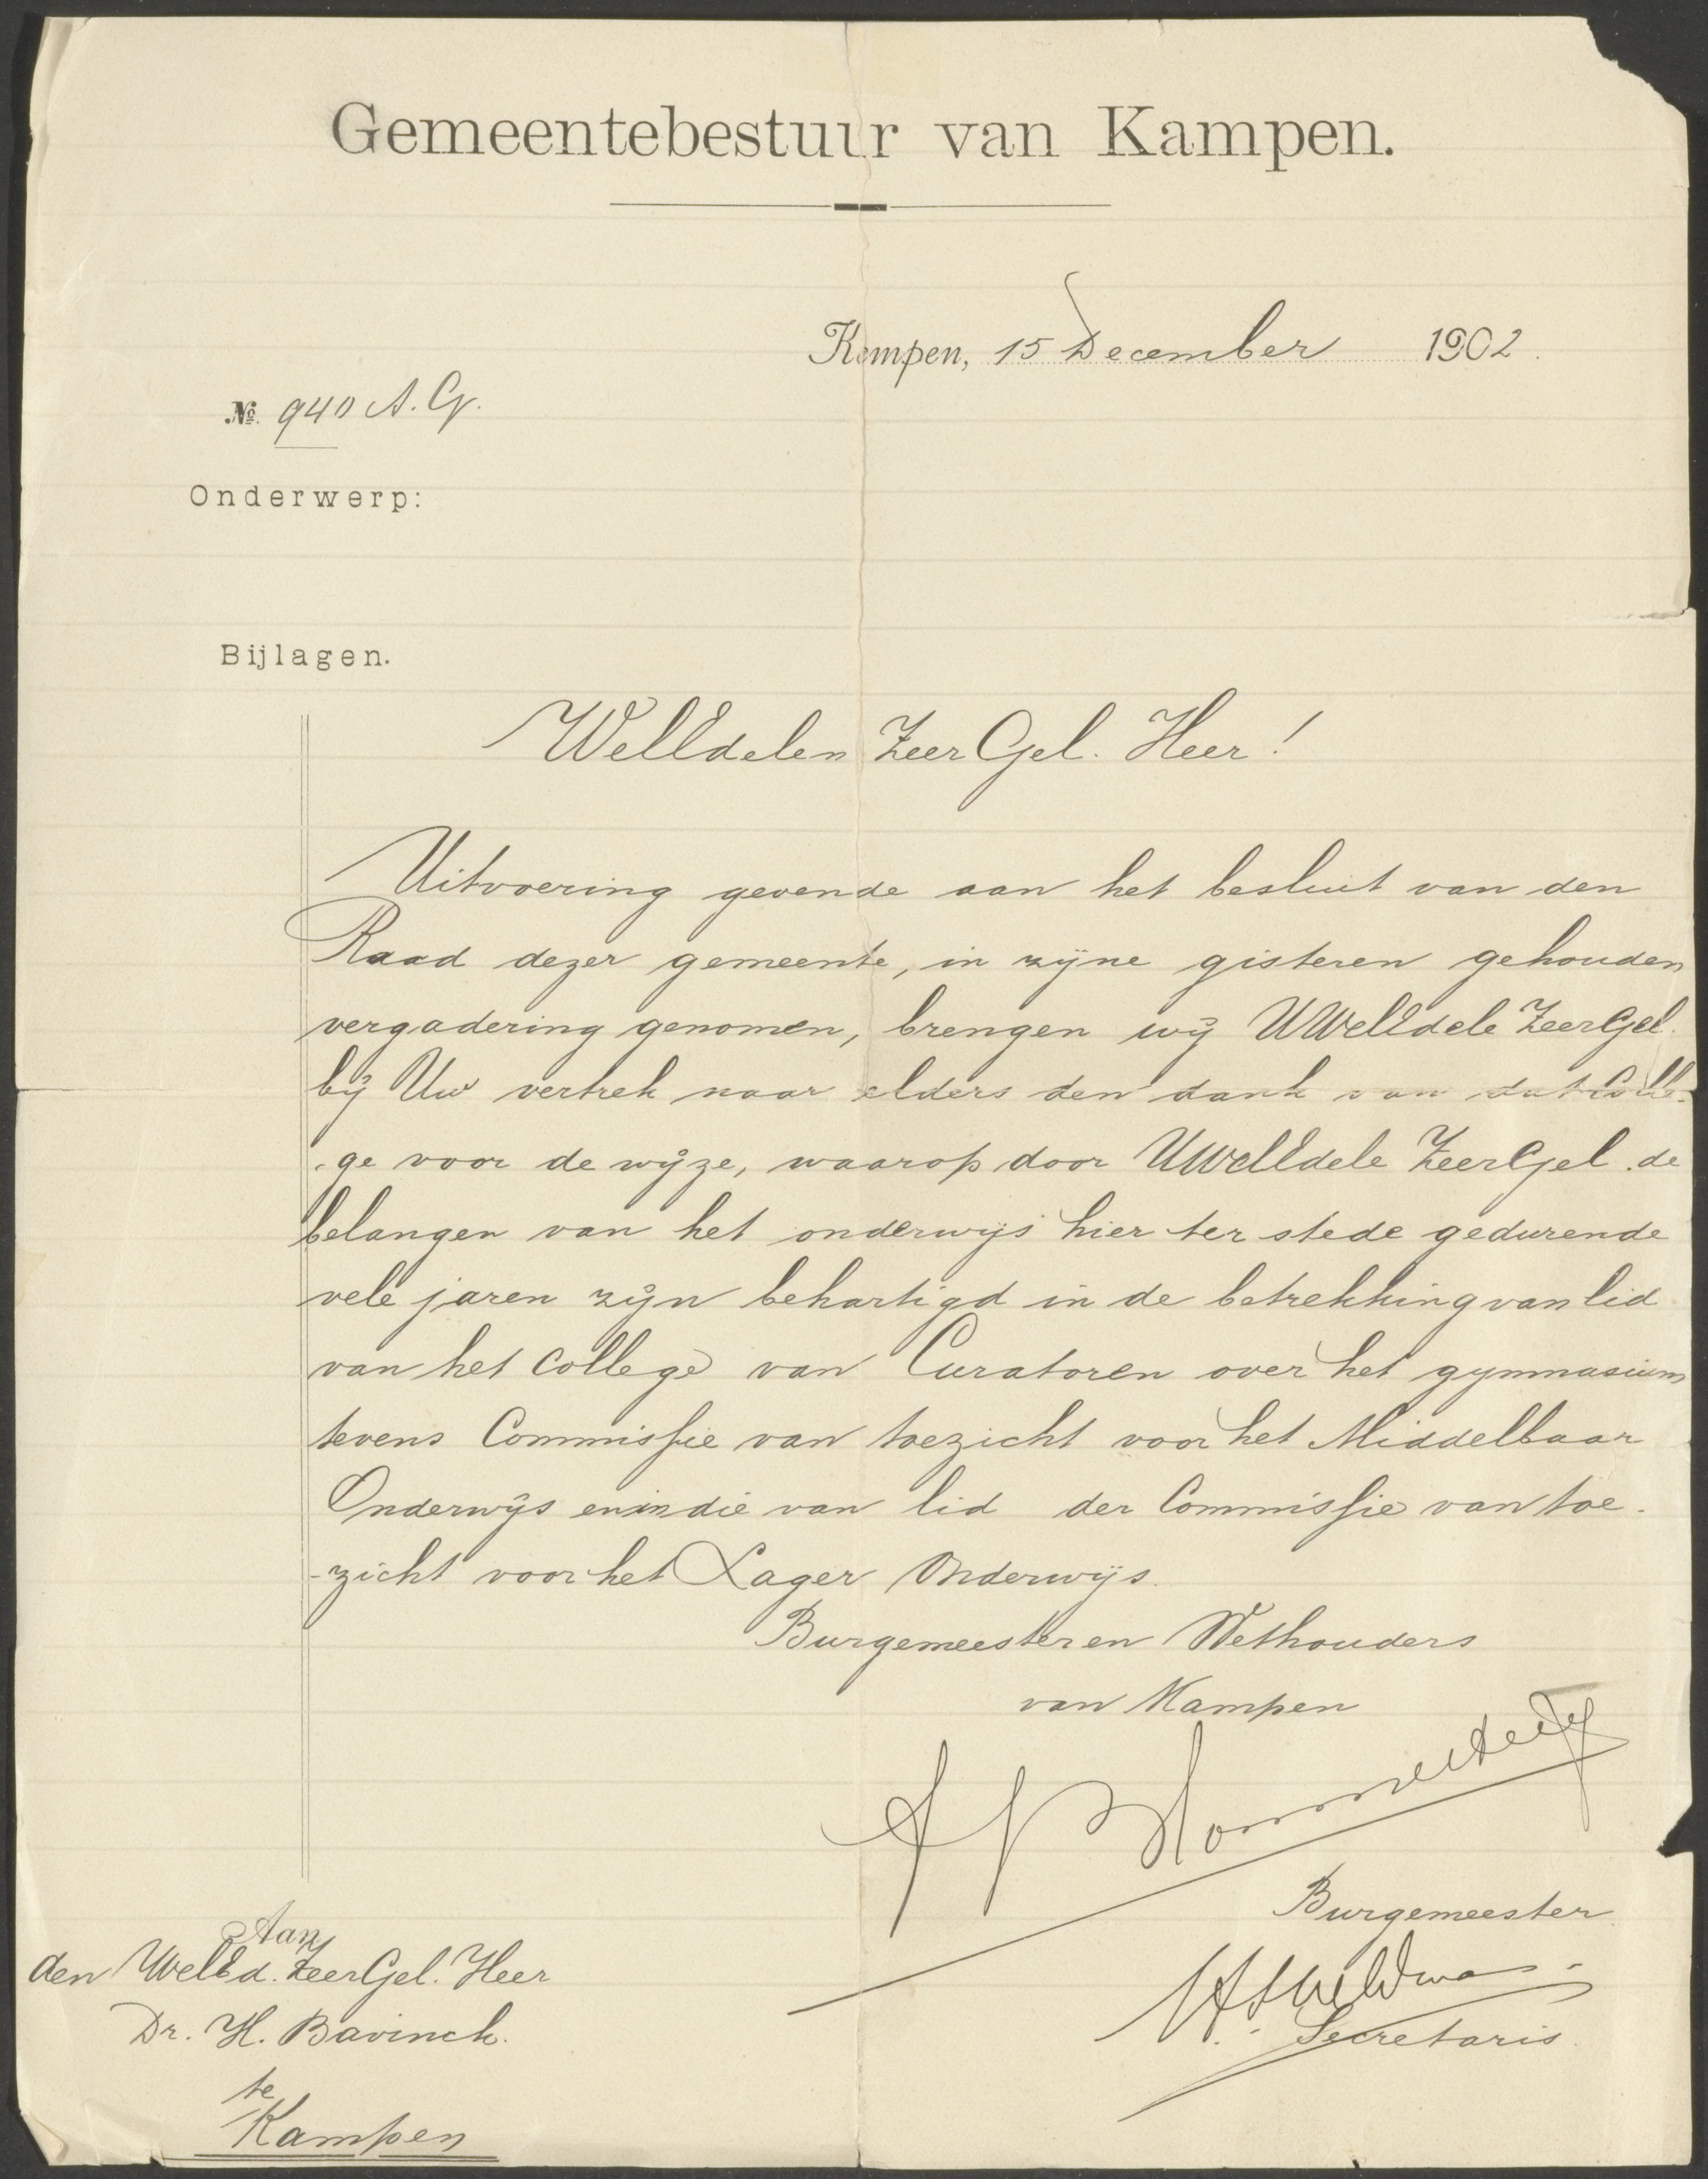 Gemeentebestuur van Kampen.
Kampen, 15 December 1902.
No. 940 A. G.
Onderwerp:
Bijlagen.
WelEdelen ZeerGel. Heer!
Uitvoering gevende aan het besluit van den
Raad dezer gemeente, in zijne gisteren gehouden
vergadering genomen, brengen wij UWelEdele ZeerGel.
bij Uw vertrek naar elders den dank van dat Colle-
-ge voor de wijze, waarop door UWelEdele ZeerGel. de
belangen van het onderwijs hier ter stede gedurende
vele jaren zijn behartigd in de betrekking van lid
van het College van Curatoren over het gymnasium
tevens Commissie van toezicht voor het Middelbaar
Onderwijs en in die van lid der Commissie van toe-
-zicht voor het Lager Onderwijs.
Burgemeester en Wethouders
van Kampen
Burgemeester.
Secretaris.
Aan
den WelEd. ZeerGel. Heer
Dr. H. Bavinck.
te
Kampen